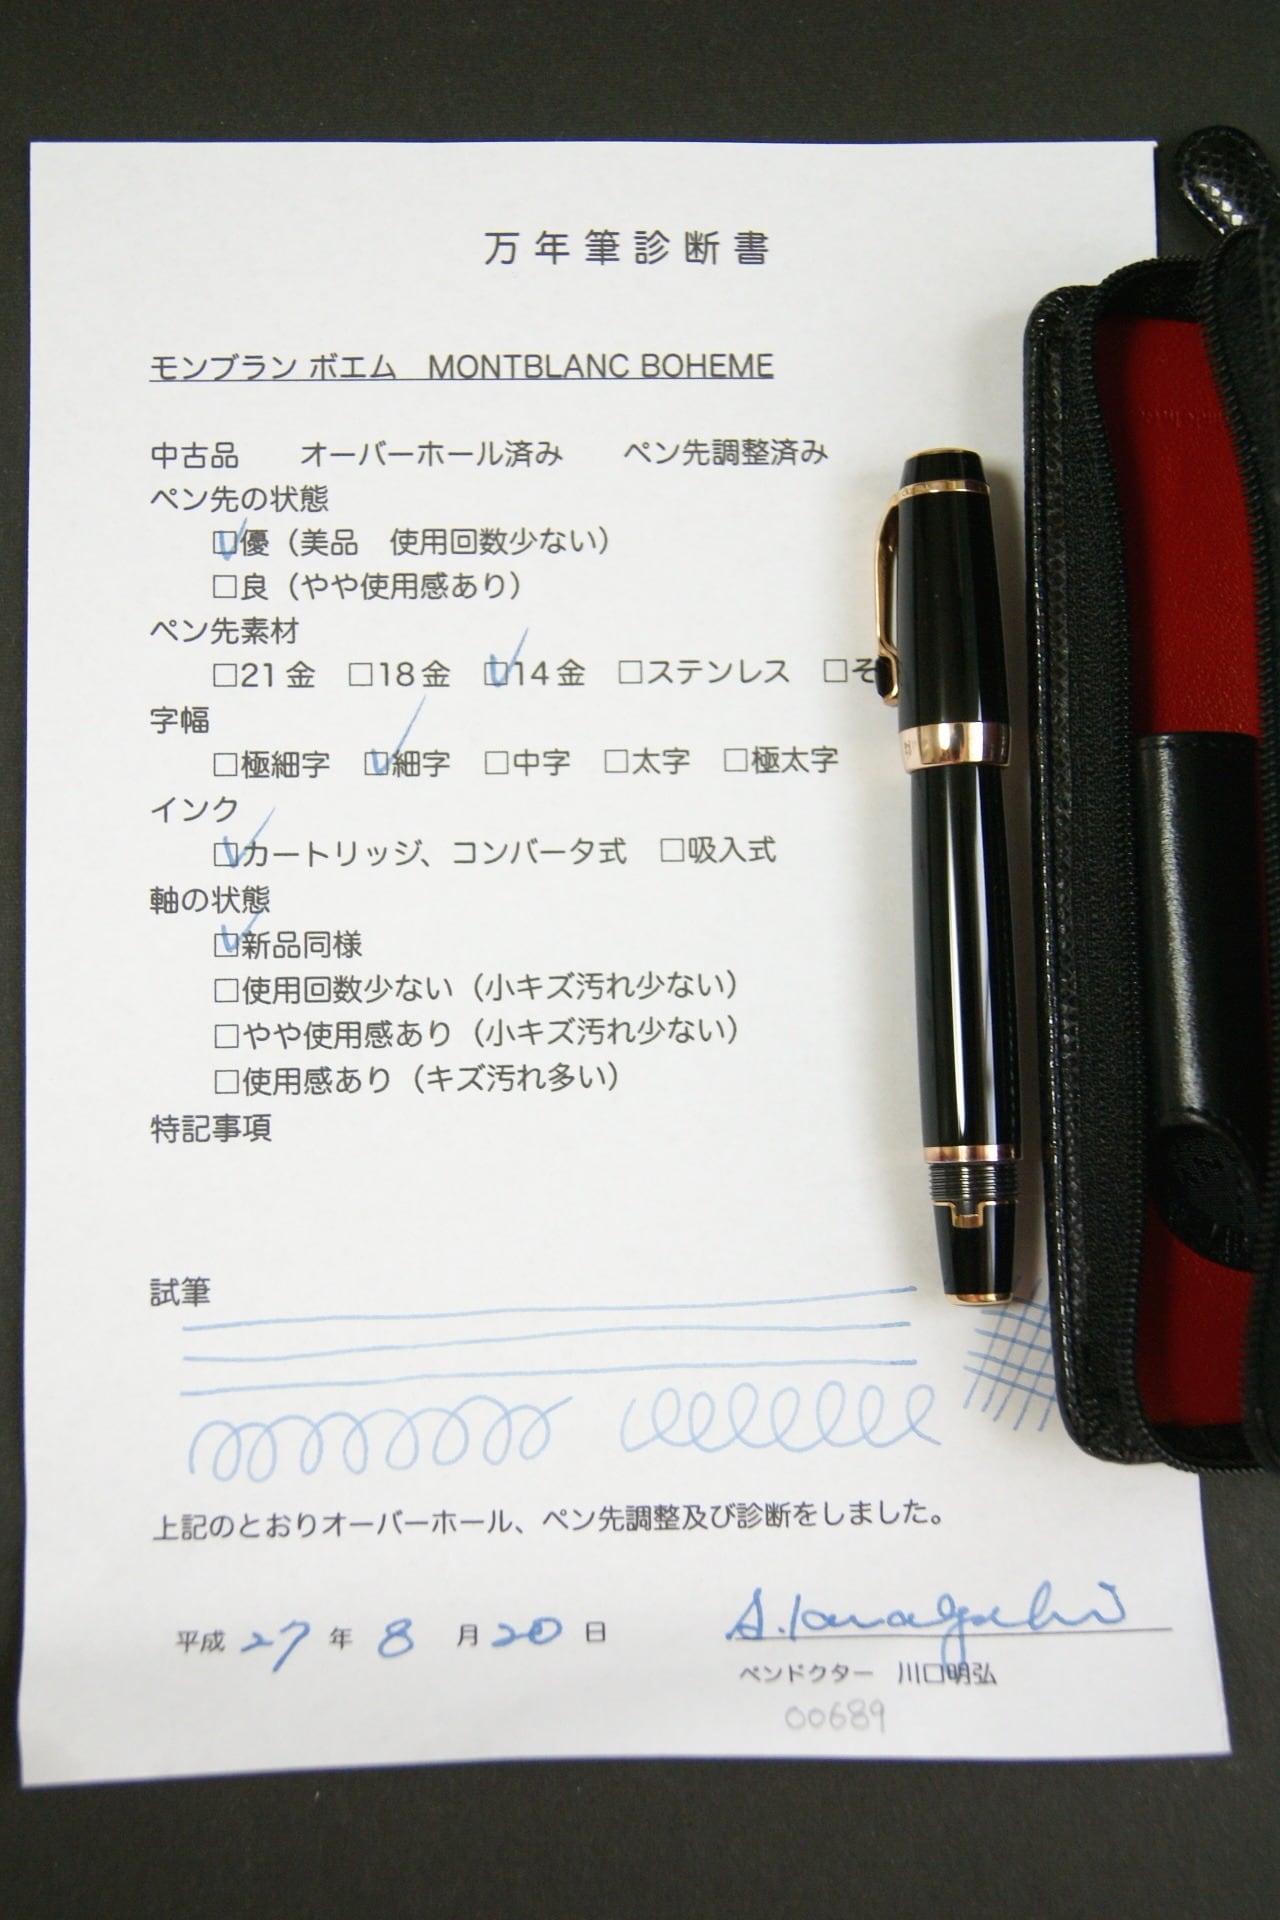 万年筆診断書
モンブラン ボエム　MONTBLANC BOHEME
中古品　　オーバーホール済み　　ペン先調整済み
ペン先の状態
☑優（美品　使用回数少ない）
□良（やや使用感あり）
ペン先素材
□21金　□18金　☑14金　□ステンレス　□そ
字幅
□極細字　☑細字　□中字　□太字　□極太字
インク
☑カートリッジ、コンバータ式　□吸入式
軸の状態
☑新品同様
□使用回数少ない（小キズ汚れ少ない）
□やや使用感あり（小キズ汚れ少ない）
□使用感あり（キズ汚れ多い）
特記事項
試筆
上記のとおりオーバーホール、ペン先調整及び診断をしました。
平成 27 年 8 月 20 日
ペンドクター　川口明弘
00689